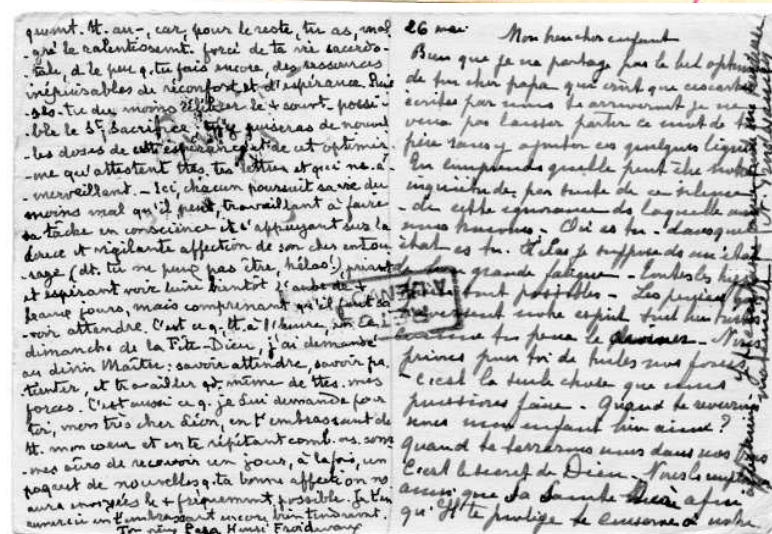 quemt. tt. au-, car, pour le reste, tu as, mal-
-gré le ralentissemt. forcé de ta vie sacerdo-
-tale, d. le peu q. tu fais encore, des ressources
inépuisables de réconfort et d'espérance. Puis-
-ses-tu du moins célébrer le + souvt. possi-
-ble le St Sacrifice. Tu y puiseras de nouvel-
-les doses de cette espérance et de cet optimis-
-me qu'attestent ttes. tes lettres et qui ns. é-
-merveillent. - Ici, chacun poursuit sa vie du
moins mal qu'il peut, travaillant à faire
sa tâche en conscience et s'appuyant sur la
douce et vigilante affection de son cher entou-
-rage (dt. tu ne peux pas être, hélas!), priant
et espérant voir luire bientôt l'aube de +
beaux jours, mais comprenant qu'il faut sa-
-voir attendre. C'est ce q. tt. à l'heure, en ce
dimanche de la Fête-Dieu, j'ai demandé
au divin Maître: savoir attendre, savoir pa-
-tienter, et travailler qd. même de ttes. mes
forces. C'est aussi ce q. je Lui demande pour
toi, mon très cher Léon, en t'embrassant de
tt. mon coeur et en te répétant comb. ns. som-
-mes sûrs de recevoir un jour, à la fois, un
paquet de nouvelles q. ta bonne affection ns
aura envoyées le + fréquemmt. possible. Je t'en
remercie en t'embrassant encore bien tendremt.
Ton vieux Papa Henri Froidevaux
26 mai
Mon bien cher enfant
Bien que je ne partage pas le bel optim
de ton cher papa qui croit que ces cartes
écrites par nous te arriveront je ne
veux pas laisser partir ce mot de ton
père sans y ajouter ces quelques lignes
Tu comprends quelle peut être notre
inquiétude par suite de ce silence
- de cette ignorance dans laquelle nous
nous trouvons - Où es tu - dans quel
état es tu. Hélas je suppose dans un état
de bien grande fatigue - Toutes les
sont possibles - Les pensées
traversent notre esprit tout
comme tu peux le deviner - Nous
prions pour toi de toutes nos forces
- c'est la seule chose que nous
puissions faire - Quand te reverrons
nous mon enfant bien aimé?
quand te serrerons nous dans nos bras
C'est le secret de Dieu - Nous
ainsi que Sa Sainte Mère afin
qu'Il te protège te conserve à notre